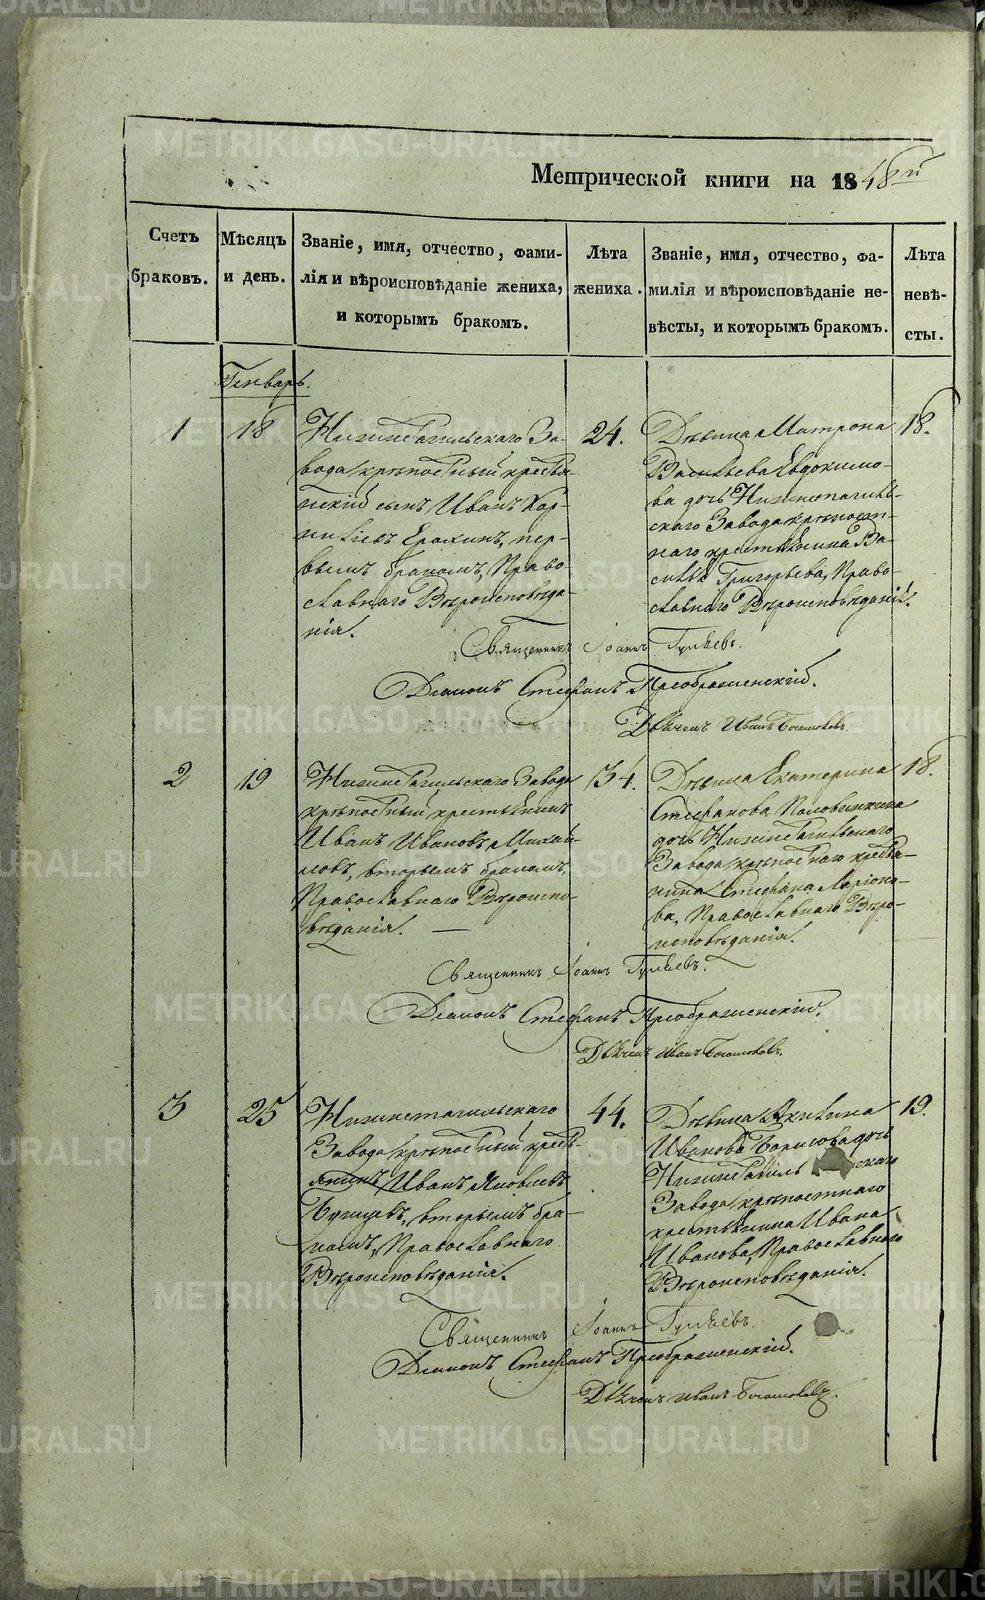 Метрической книги на 1848й
Счетъ браковъ.
Мѣсяцъ и день.
Званіе, имя, отчество, фами-
лія и вѣроисповѣданіе жениха,
и которымъ бракомъ.
Лѣта жениха.
Званіе, имя, отчество, фа-
милія и вѣроисповѣданіе не-
вѣсты, и которымъ бракомъ.
Лѣта невѣ-
сты.
Генварь.
1
18
Нижнетагильскаго За-
вода крѣпостный крестья-
нскій сынъ Иванъ Кор-
ниліевъ Ерохинъ, пер-
вымъ бракомъ, Право-
славнаго Вѣроисповѣда-
нія.
24.
Дѣвица Матрона
Васильева Евдокимо-
ва дочь Нижнетагиль-
скаго Завода крѣпост-
наго крестьянина Ва-
силья Григорьева, Право-
славнаго Вѣроисповѣданія.
18.
Священникъ Іоаннъ Гуляевъ.
Діаконъ Стефанъ Преображенскій.
Дьячекъ Иванъ
2
19
Нижнетагильскаго Завода
крѣпостный крестьянинъ
Иванъ Ивановъ Михай-
ловъ, вторымъ бракомъ,
Православнаго Вѣроиспо-
вѣданія. —
34.
Дѣвица Екатерина
Стефанова Половинкина
дочь Нижнетагильскаго
Завода крѣпостнаго крестья-
нина Стефана Ларіоно-
ва, Православнаго Вѣро-
исповѣданія.
18.
Священникъ Іоаннъ Гуляевъ.
Діаконъ Стефанъ Преображенскій.
Дьячекъ Иванъ
3
25
Нижнетагильскаго
Завода крѣпостный кресть-
янинъ Иванъ Яковлевъ
вторымъ бра-
комъ, Православнаго
Вѣроисповѣданія.
44.
Дѣвица Акилина
Иванова Борисова дочь
Нижнетагильскаго
Завода крѣпостнаго
крестьянина Ивана
Иванова, Православнаго
Вѣроисповѣданія.
19.
Священникъ Іоаннъ Гуляевъ.
Діаконъ Стефанъ Преображенскій.
Дьячекъ Иванъ
METRIKI.GASO-URAL.RU